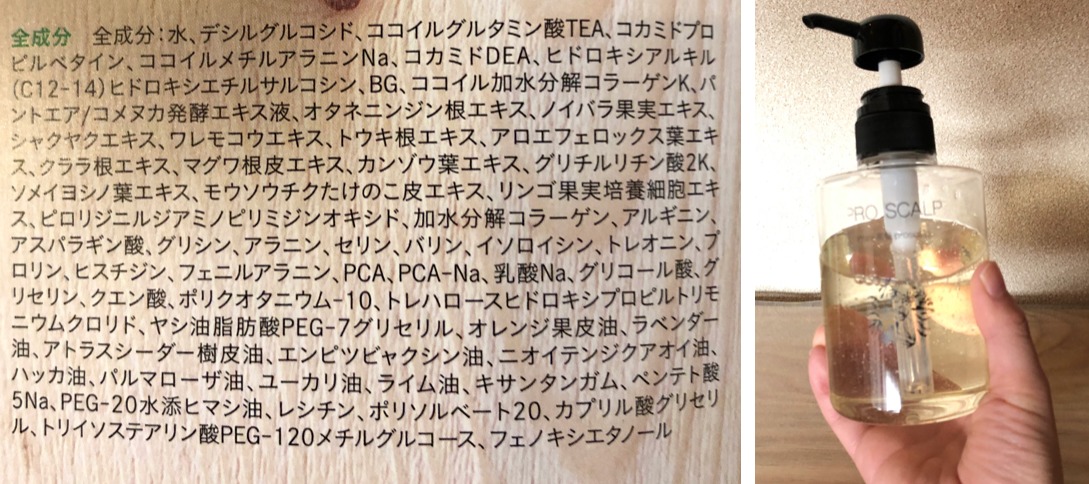 全成分　全成分：水、デシルグルコシド、ココイルグルタミン酸TEA、コカミドプロ
ピルベタイン、ココイルメチルアラニンNa、コカミドDEA、ヒドロキシアルキル
(C12-14)ヒドロキシエチルサルコシン、BG、ココイル加水分解コラーゲンK、パ
ントエア/コメヌカ発酵エキス液、オタネニンジン根エキス、ノイバラ果実エキス、
シャクヤクエキス、ワレモコウエキス、トウキ根エキス、アロエフェロックス葉エキ
ス、クララ根エキス、マグワ根皮エキス、カンゾウ葉エキス、グリチルリチン酸2K、
ソメイヨシノ葉エキス、モウソウチクたけのこ皮エキス、リンゴ果実培養細胞エキ
ス、ピロリジニルジアミノピリミジンオキシド、加水分解コラーゲン、アルギニン、
アスパラギン酸、グリシン、アラニン、セリン、バリン、イソロイシン、トレオニン、プ
ロリン、ヒスチジン、フェニルアラニン、PCA、PCA-Na、乳酸Na、グリコール酸、グ
リセリン、クエン酸、ポリクオタニウム-10、トレハロースヒドロキシプロピルトリモ
ニウムクロリド、ヤシ油脂肪酸PEG-7グリセリル、オレンジ果皮油、ラベンダー
油、アトラスシーダー樹皮油、エンピツビャクシン油、ニオイテンジクアオイ油、
ハッカ油、パルマローザ油、ユーカリ油、ライム油、キサンタンガム、ペンテト酸
5Na、PEG-20水添ヒマシ油、レシチン、ポリソルベート20、カプリル酸グリセリ
ル、トリイソステアリン酸PEG-120メチルグルコース、フェノキシエタノール
PRO SCALP